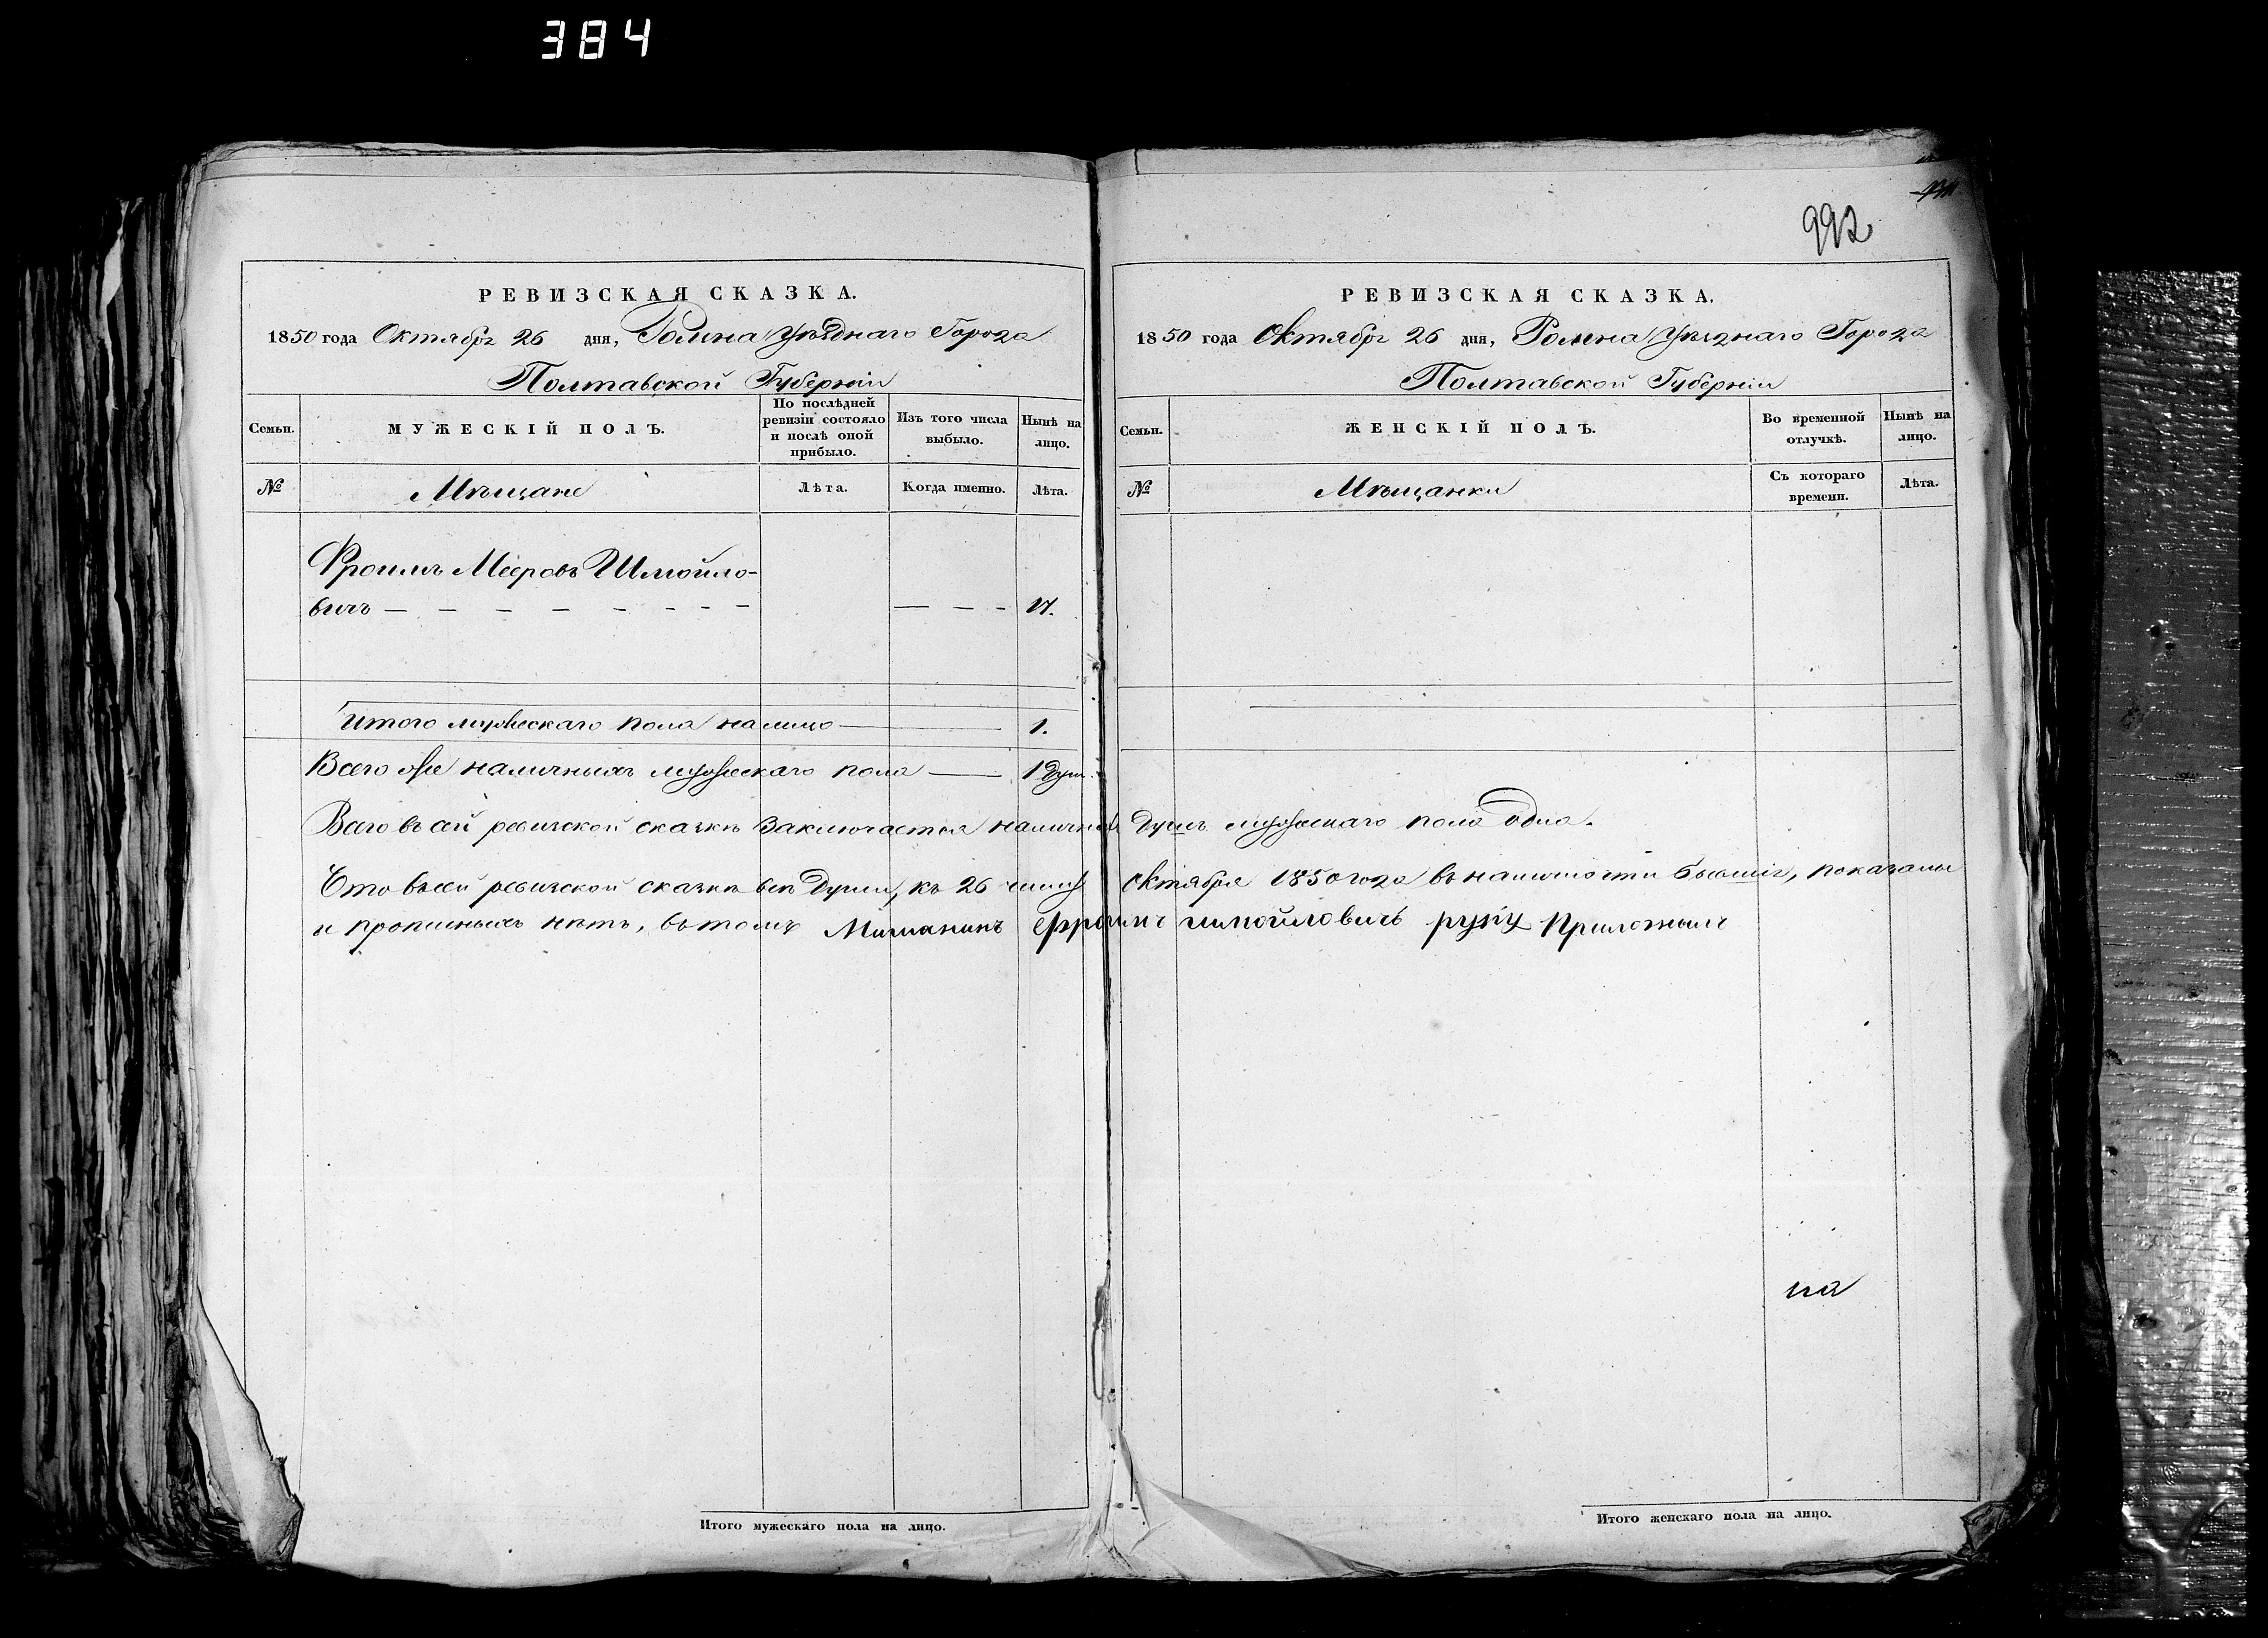 384
992
РЕВИЗСКАЯ СКАЗКА.
1850 года Октября 26 дня, Ромна Уѣзднаго Города
Полтавской Губерніи
Семьи.
МУЖЕСКІЙ ПОЛЪ.
По послѣдней ревизіи состояло и послѣ оной прибыло.
Изъ того числа выбыло.
Нынѣ на лицо.
№
Мѣщане
Лѣта.
Когда именно.
Лѣта.
Фроимъ Мееровъ Шмойло-
вичъ — — — — — — — — — — —
Итого мужескаго пола налицо — 1.
Всего же наличныхъ мужескаго пола — 1 душ.
РЕВИЗСКАЯ СКАЗКА.
1850 года Октября 26 дня, Ромна Уѣзднаго Города
Полтавской Губерніи
Семьи.
ЖЕНСКІЙ ПОЛЪ.
Во временной отлучкѣ.
Нынѣ на лицо.
№
Мѣщанки
Съ котораго времени.
Лѣта.
Всего въ сей ревизской сказкѣ заключается наличныхъ душъ мужескаго пола одна.
Что въ сей ревизской сказкѣ всѣ души, къ 26 числу Октября 1850 года въ наличности бывшіе, показаны
и прописныхъ нѣтъ, въ томъ Мишанинъ Ефроимъ шмойловичъ руку Приложилъ
Итого мужескаго пола на лицо.
Итого женскаго пола на лицо.